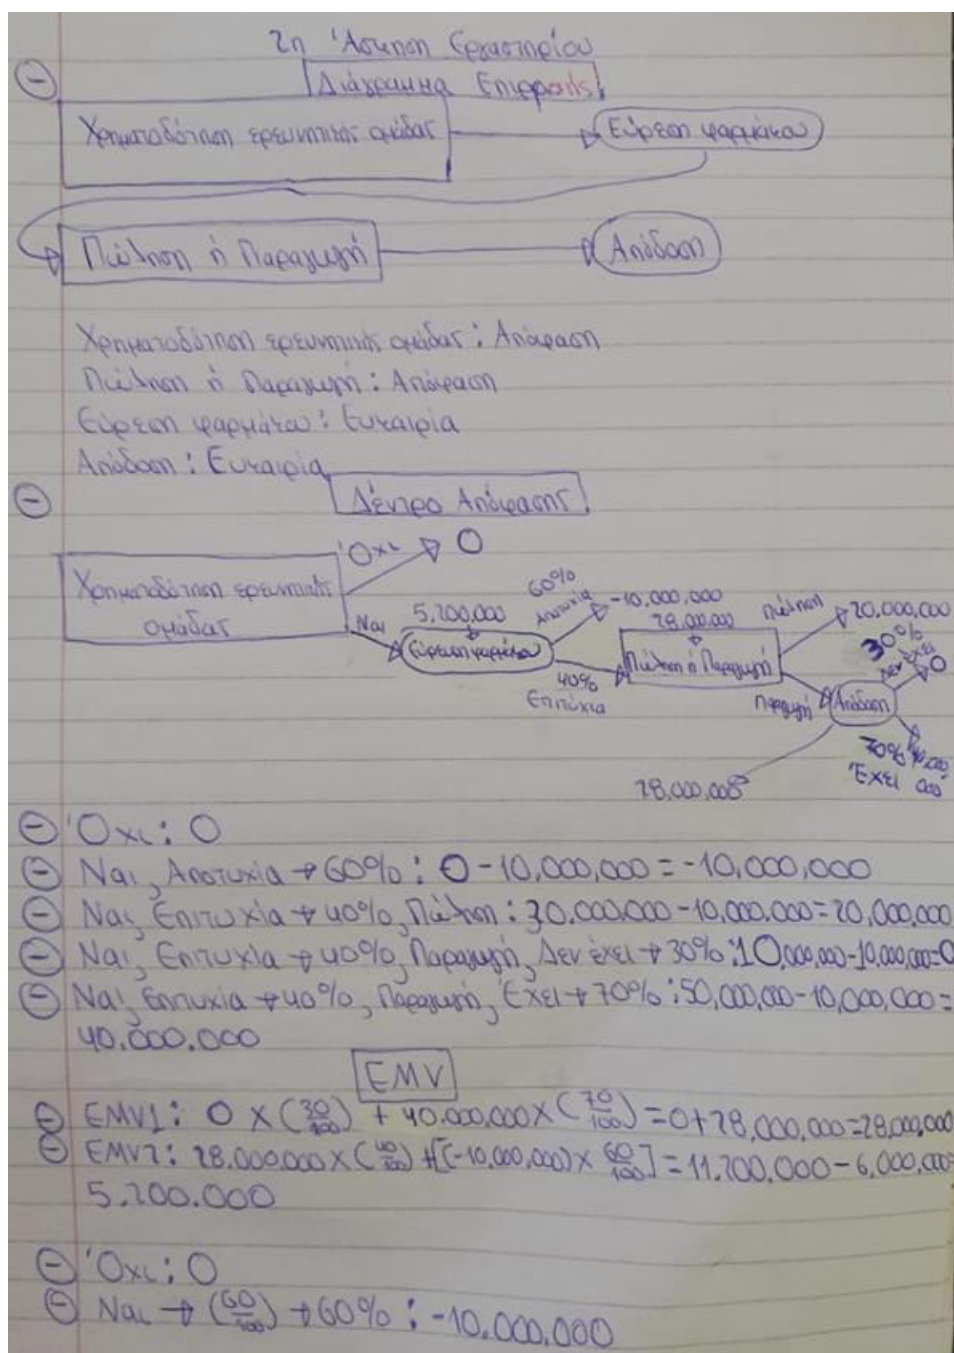 2η Άσκηση Εργαστηρίου
Διάγραμμα Επιρροής
Χρηματοδότηση ερευνητικής ομάδας
Εύρεση φαρμάκου
Πώληση ή Παραγωγή
Απόδοση
Χρηματοδότηση ερευνητικής ομάδας: Απόφαση
Πώληση ή Παραγωγή: Απόφαση
Εύρεση φαρμάκου: Ευκαιρία
Απόδοση: Ευκαιρία
Δέντρο Απόφασης
Χρηματοδότηση ερευνητικής
ομάδας
Όχι
0
Ναι
5.200,000
Εύρεση φαρμάκου
60%
Αποτυχία
-10,000,000
40%
Επιτυχία
28.000.000
Πώληση ή Παραγωγή
Πώληση
20.000,000
Παραγωγή
Απόδοση
30%
Δεν έχει
0
70%
Έχει
40,000,000
28,000,000
Όχι: 0
Ναι, Αποτυχία → 60%: 0 - 10,000,000 = -10,000,000
Ναι, Επιτυχία → 40%, Πώληση: 30.000.000 - 10,000.000 = 20,000,000
Ναι, Επιτυχία → 40%, Παραγωγή, Δεν έχει → 30%: 10,000,000 - 10,000,000 = 0
Ναι, Επιτυχία → 40%, Παραγωγή, Έχει → 70%: 50,000,000 - 10,000,000 =
40.000.000
EMV
EMV1: 0 x (30/100) + 40.000.000 x (70/100) = 0 + 28,000,000 = 28,000,000
EMV2: 28.000.000 x (40/100) + [(-10,000,000) x 60/100] = 11.200.000 - 6,000,000 =
5.200.000
Όχι: 0
Ναι → (60/100) → 60%: -10.000.000